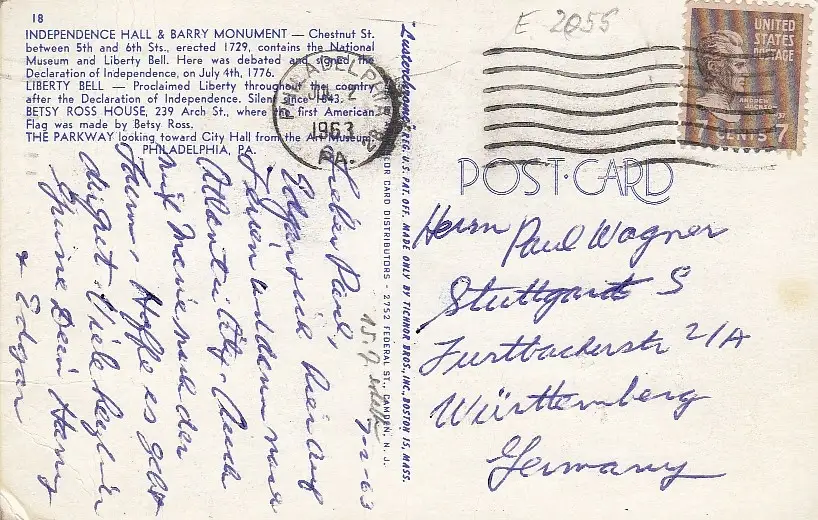 18
INDEPENDENCE HALL & BARRY MONUMENT — Chestnut St.
between 5th and 6th Sts., erected 1729, contains the National
Museum and Liberty Bell. Here was debated and signed the
Declaration of Independence, on July 4th, 1776.
LIBERTY BELL — Proclaimed Liberty throughout the country
after the Declaration of Independence. Silent since 1843.
BETSY ROSS HOUSE, 239 Arch St., where the first American
Flag was made by Betsy Ross.
THE PARKWAY looking toward City Hall from the Art Museum,
PHILADELPHIA, PA.
E 2055
PHILADELPHIA
JUL 2
1963
PA.
UNITED
STATES
POSTAGE
ANDREW
JACKSON
7 CENTS 7
POST CARD
"Lusterchrome" REG. U. S. PAT. OFF. MADE ONLY BY TICHNOR BROS., INC., BOSTON 15, MASS.
COLOR CARD DISTRIBUTORS - 2752 FEDERAL ST., CAMDEN, N. J.
7-2-63
Lieber Paul,
Edgar und
und dann nach
Atlantic City. Auch
mit Marie nach der
Farm. Hoffe es geht
dir gut. Viele
Deine Hanny
+ Edgar
Herrn Paul Wagner
Stuttgart S
Furtbachstr 2/A
Württemberg
Germany